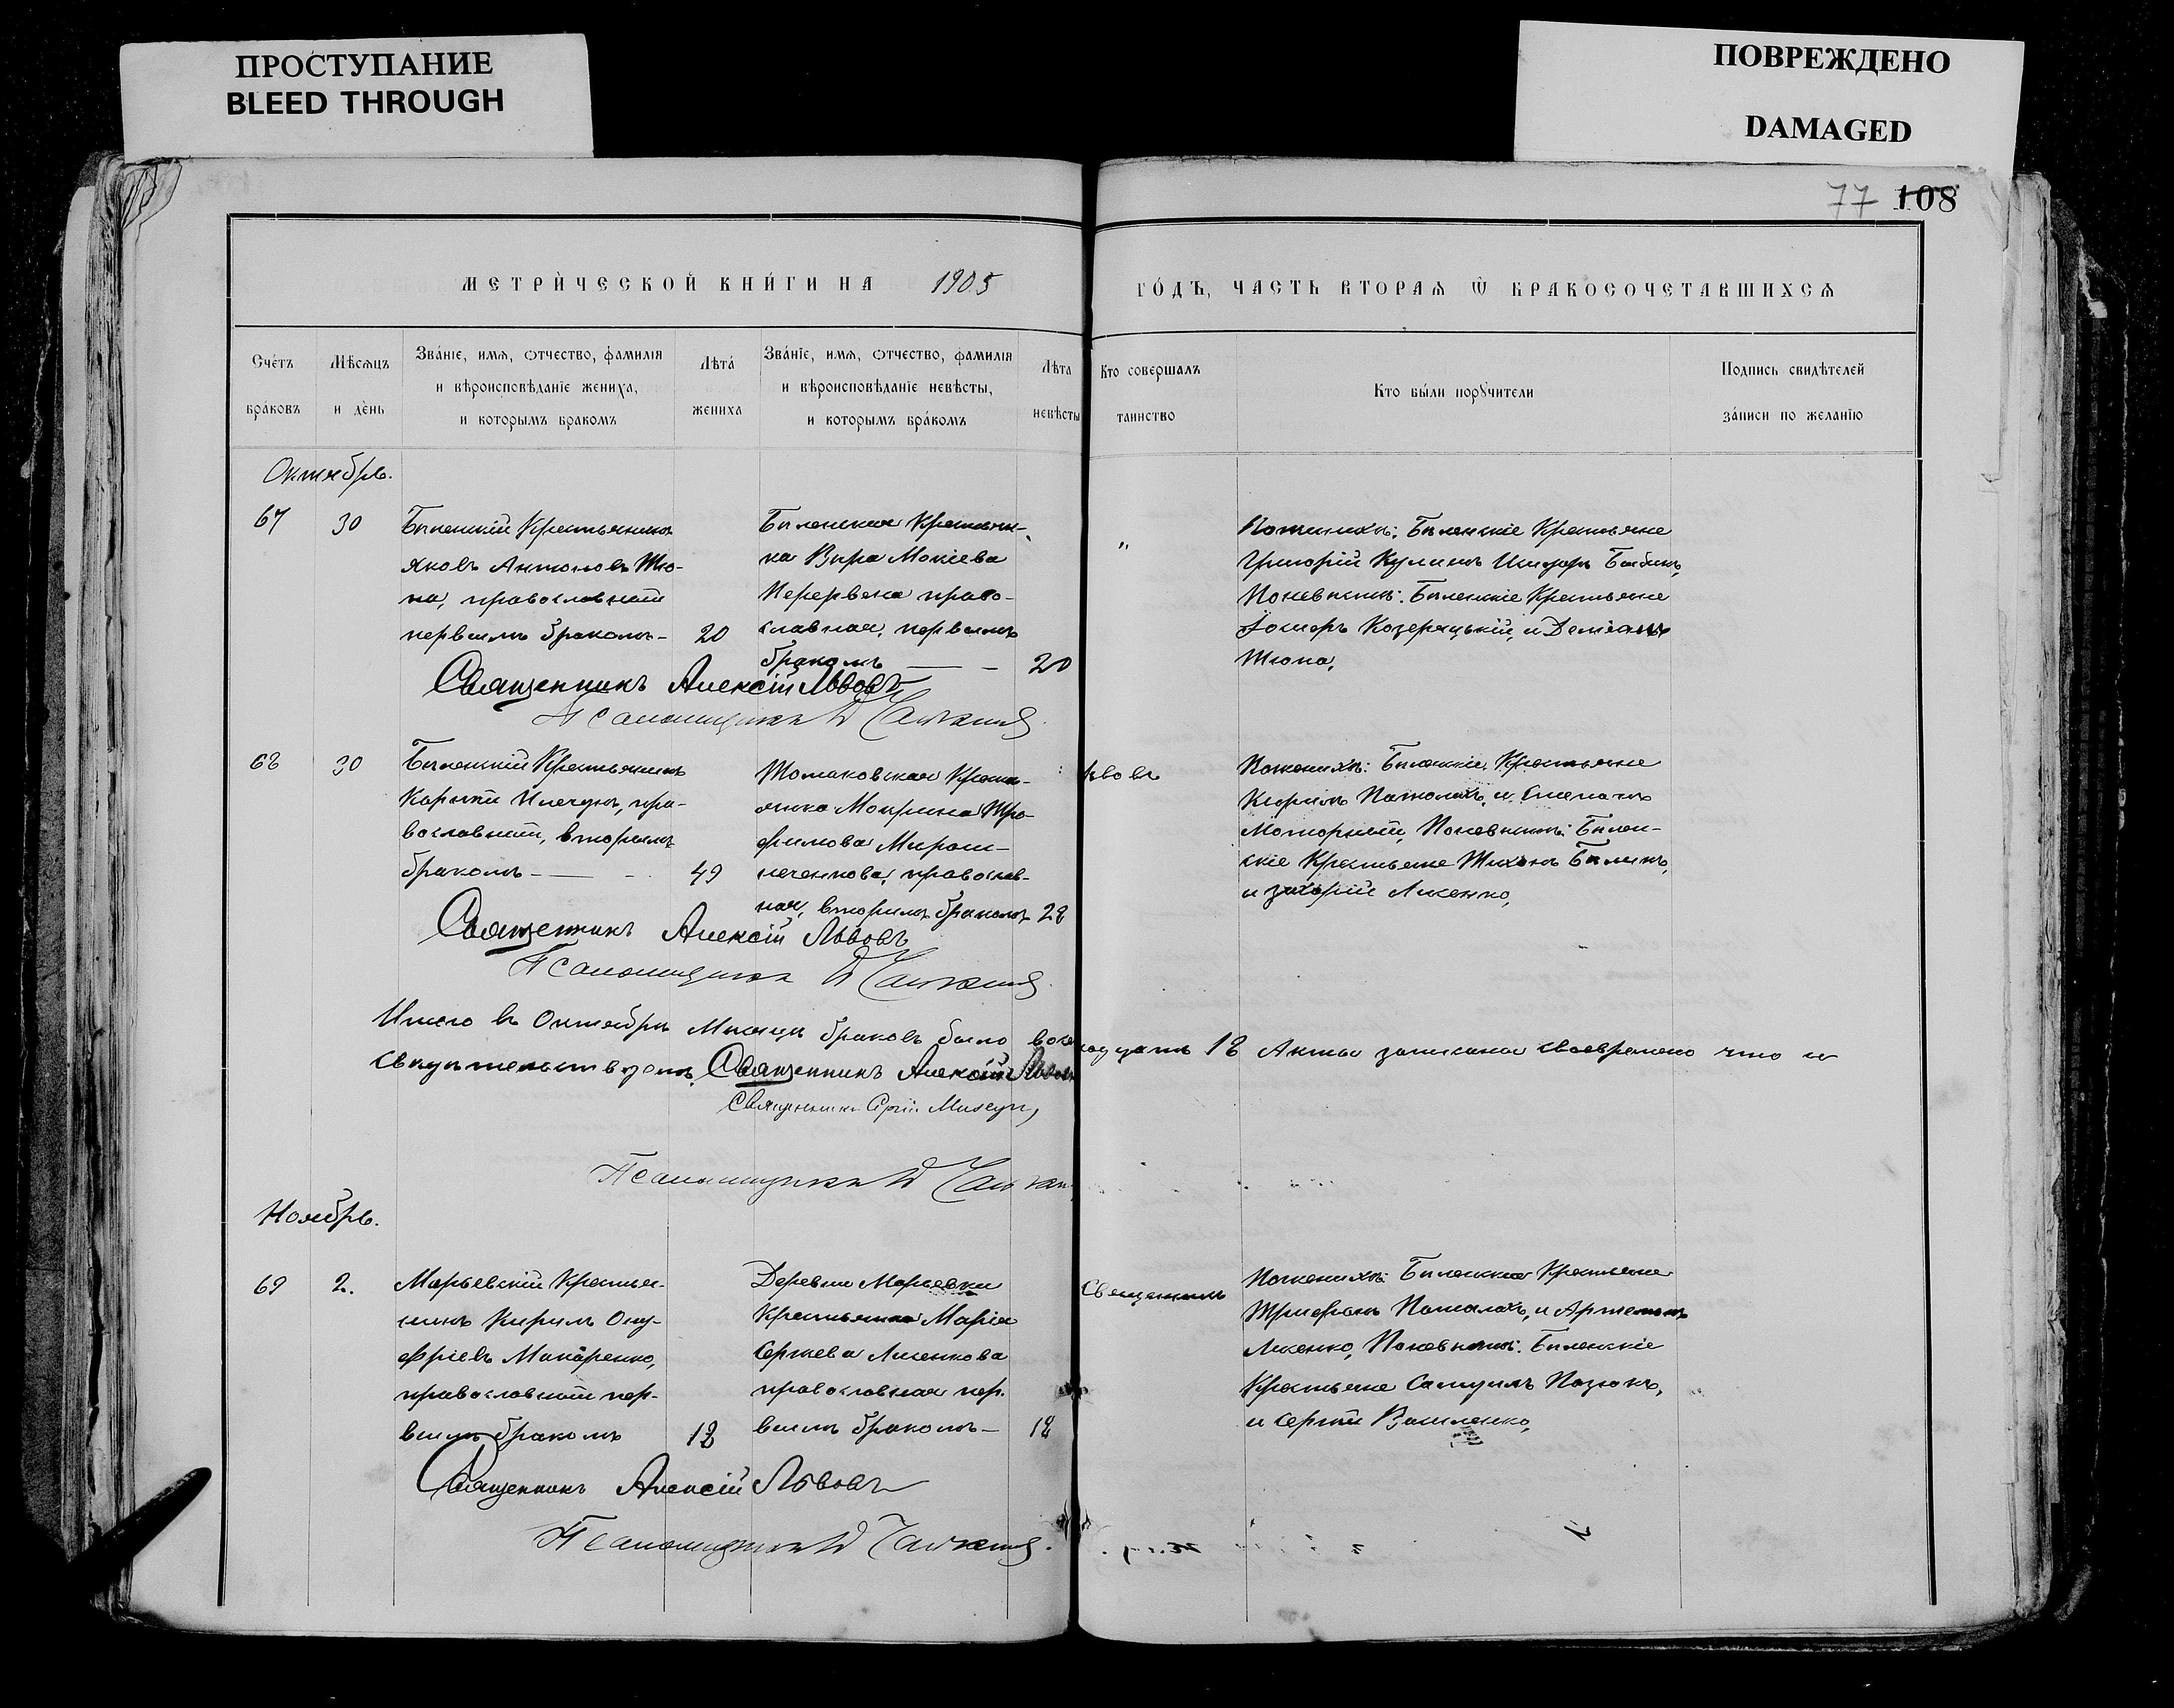 ПРОСТУПАНИЕ
BLEED THROUGH
ПОВРЕЖДЕНО
DAMAGED
77 108
МЕТРИ́ЧЕСКОЙ КНИ́ГИ НА 1905 ГО́ДЪ, ЧАСТЬ ВТОРАѦ Ѡ БРАКОСОЧЕТАВШИХСѦ
Сче́тъ бра́ковъ
Мѣ́сѧцъ и де́нь
Зва́нїе, имѧ, ѻтчество, фамилїѧ
и вѣроисповѣданїе жениха,
и которымъ бракомъ
Лѣта́ жениха
Зва́нїе, имѧ, ѻтчество, фамилїѧ
и вѣроисповѣданїе невѣсты,
и которымъ бра́комъ
Лѣта невѣсты
Кто совершалъ таинство
Кто бы́ли порꙋчители
Подпись свидѣтелей
за́писи по желанїю
Октябрь.
67 30
Бѣленскій Крестьянинъ
Яковъ Антоновъ Тю-
па, православный
первымъ бракомъ - 20
Бѣленская Крестьян-
ка Вѣра Мокіева
Перервена право-
славная, первымъ
бракомъ — - 20
"
Поженихѣ: Бѣленскіе Крестьяне
Григорій Кулишъ
Поневѣстѣ: Бѣленскіе Крестьяне
Козеряцькій, и Деміанъ
Тюпа,
Священникъ Алексій Львовъ
Псаломщикъ
68 30
Бѣленскій Крестьянинъ
пра-
вославный, вторымъ
бракомъ - — - 49
Томаковская Крестья-
янка Мокрина Тро-
фимова Мирош-
ниченкова, православ-
ная, вторымъ бракомъ 28
Львовъ
Поженихѣ: Бѣленскіе Крестьяне
Кирилъ Паталахъ, и Степанъ
Моторный, Поневѣстѣ: Бѣлен-
скіе Крестьяне Тихонъ Бѣликъ,
и Захарій Лисенко,
Священникъ Алексій Львовъ
Псаломщикъ
Итого въ Октябрѣ Мѣсяцѣ браковъ было восемнадцать 18 Акты записаны своевремено что и
свидѣтельствуемъ, Священникъ Алексій Львовъ
Священникъ
Псаломщикъ
Ноябрь.
69 2.
Марьевскій Крестья-
нинъ Кирилъ Ону-
фріевъ Макаренко,
православный пер-
вымъ бракомъ 18
Деревни Марьевки
Крестьянка Марія
Сергіева Лисенкова
православная пер.
вымъ бракомъ - 18
Священникъ
Поженихѣ: Бѣленскіе Крестьяне
Трифонъ Паталахъ, и Артемонъ
Лисенко, Поневѣстѣ: Бѣленскіе
Крестьяне Самуилъ Пазюкъ,
и Сергій Василенко,
Священникъ Алексій Львовъ
Псаломщикъ